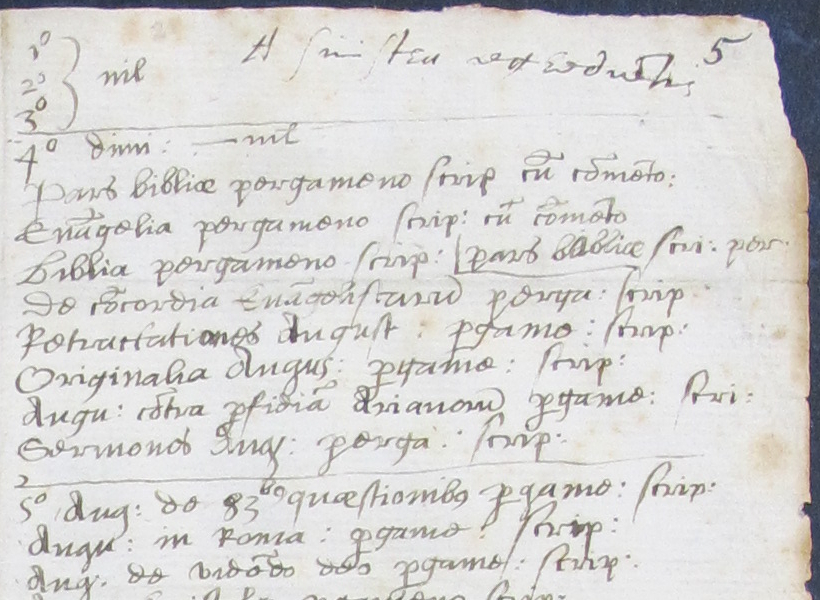 A sinistra egredientis 5
1º
2º nil
3º
4º dimi: — nil
Pars bibliæ pergameno scrip cũ cõmẽto:
Euãgelia pergameno scrip: cũ cõmẽto
Biblia pergameno scrip: pars bibliæ scri: per.
De cõcordia Euãgelistarũ perga: scrip
Retractationes August: pgame: scrip:
Originalia Augus: pgame: scrip:
Augu: cõtra pfidiã Arianorũ pgame: scri:
Sermones Aug: perga: scrip:
5º Aug: de 83bº quæstionibus pgame: scrip:
Augu: in Roma: pgame: scrip:
Aug. de vidẽdo deo pgame: scrip: